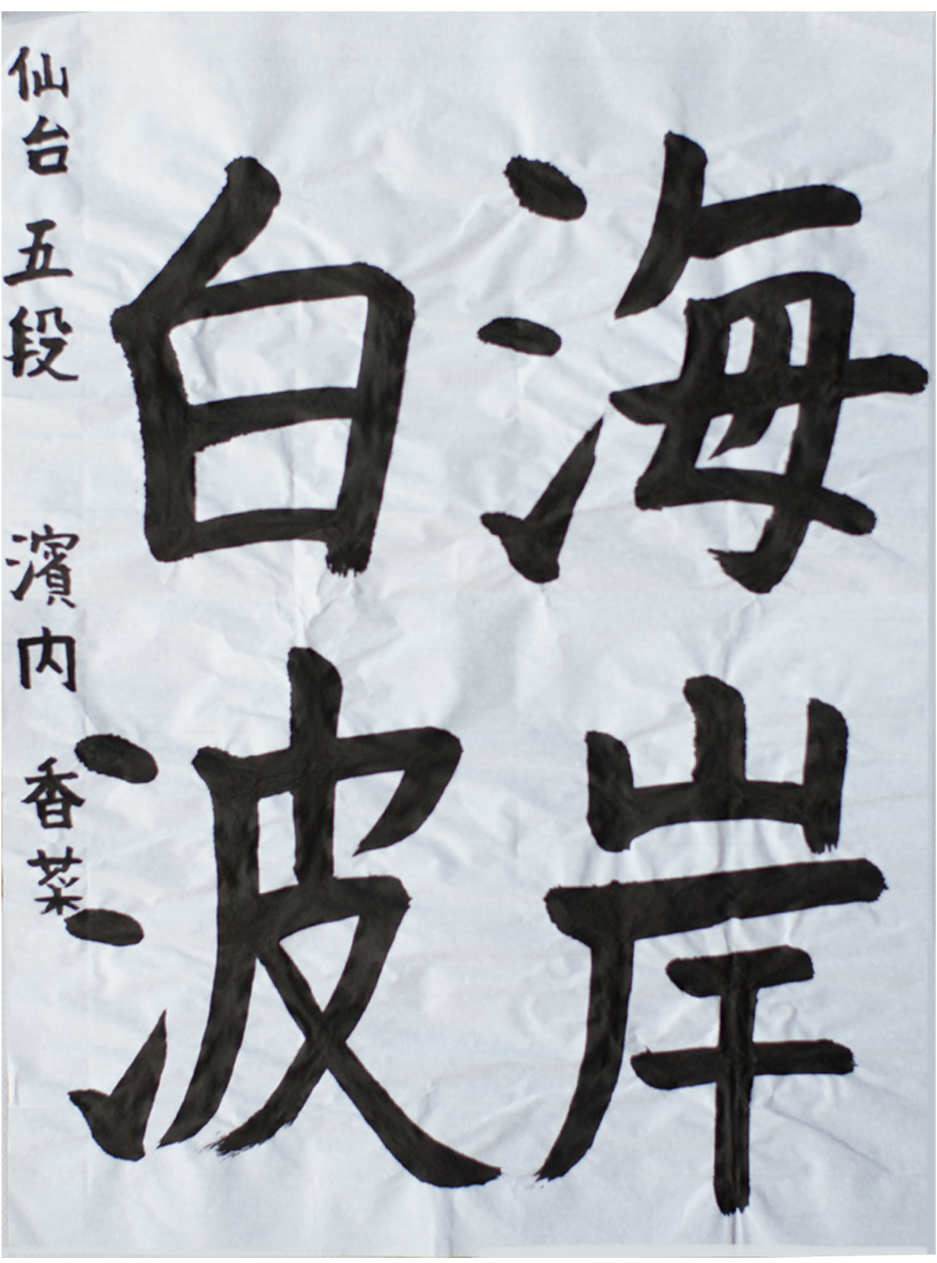 海岸
白波
仙台 五段 濱内 香菜